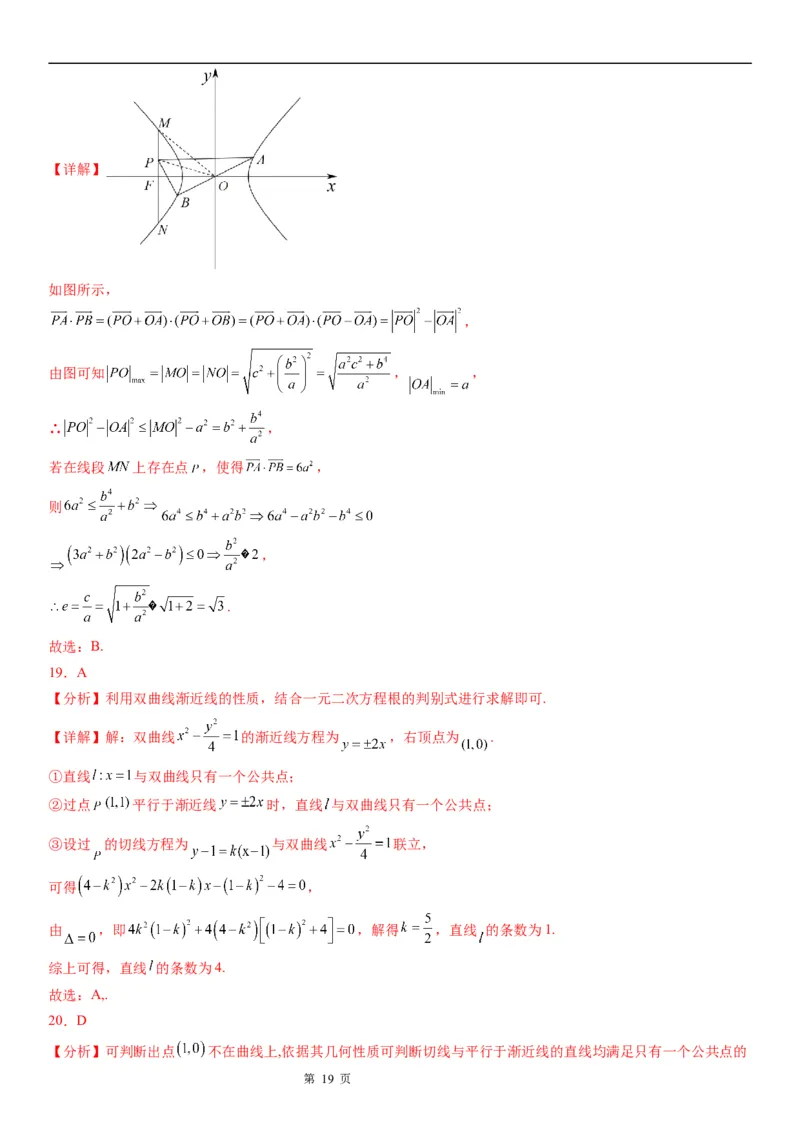 y
M
P
A
【详解】
F
O
x
B
N
如图所示，
$\overrightarrow{PA}\cdot\overrightarrow{PB}=(\overrightarrow{PO}+\overrightarrow{OA})\cdot(\overrightarrow{PO}+\overrightarrow{OB})=(\overrightarrow{PO}+\overrightarrow{OA})\cdot(\overrightarrow{PO}-\overrightarrow{OA})=|\overrightarrow{PO}|^2-|\overrightarrow{OA}|^2$，
由图可知$|PO|_{\max}=|MO|=|NO|=\sqrt{c^2+\left(\frac{b^2}{a}\right)^2}=\sqrt{\frac{a^2c^2+b^4}{a^2}}$，$|OA|_{\min}=a$，
∴$|PO|^2-|OA|^2\le|MO|^2-a^2=b^2+\frac{b^4}{a^2}$，
若在线段$MN$上存在点$P$，使得$\overrightarrow{PA}\cdot\overrightarrow{PB}=6a^2$，
则$6a^2\le\frac{b^4}{a^2}+b^2\Rightarrow 6a^4\le b^4+a^2b^2\Rightarrow 6a^4-a^2b^2-b^4\le0$
$\Rightarrow(3a^2+b^2)(2a^2-b^2)\le0\Rightarrow\frac{b^2}{a^2}�2$，
∴$e=\frac{c}{a}=\sqrt{1+\frac{b^2}{a^2}}�\sqrt{1+2}=\sqrt{3}$.
故选：B.
19．A
【分析】利用双曲线渐近线的性质，结合一元二次方程根的判别式进行求解即可.
【详解】解：双曲线$x^2-\frac{y^2}{4}=1$的渐近线方程为$y=\pm2x$，右顶点为$(1,0)$.
①直线$l:x=1$与双曲线只有一个公共点；
②过点$P(1,1)$平行于渐近线$y=\pm2x$时，直线$l$与双曲线只有一个公共点；
③设过$P$的切线方程为$y-1=k(x-1)$与双曲线$x^2-\frac{y^2}{4}=1$联立，
可得$(4-k^2)x^2-2k(1-k)x-(1-k)^2-4=0$，
由$\Delta=0$，即$4k^2(1-k)^2+4(4-k^2)\left[(1-k)^2+4\right]=0$，解得$k=\frac{5}{2}$，直线$l$的条数为1.
综上可得，直线$l$的条数为4.
故选：A,.
20．D
【分析】可判断出点$(1,0)$不在曲线上,依据其几何性质可判断切线与平行于渐近线的直线均满足只有一个公共点的
第 19 页